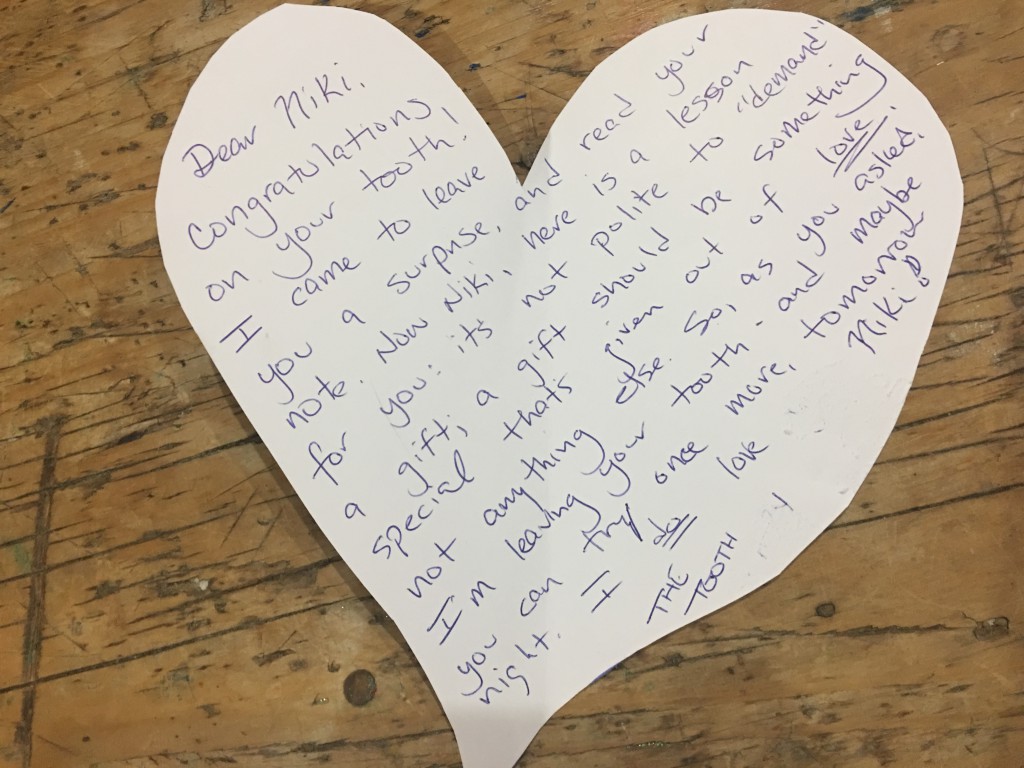 Dear Niki,
Congratulations
on your tooth!
I came to leave
you a surprise, and read your
note. Now Niki, here is a lesson
for you: its not polite to "demand"
a gift; a gift should be something
special thats given out of love,
not anything else. So, as you asked,
I'm leaving your tooth - and maybe
you can try once more, tomorrow
night. I do love Niki!
THE TOOTH